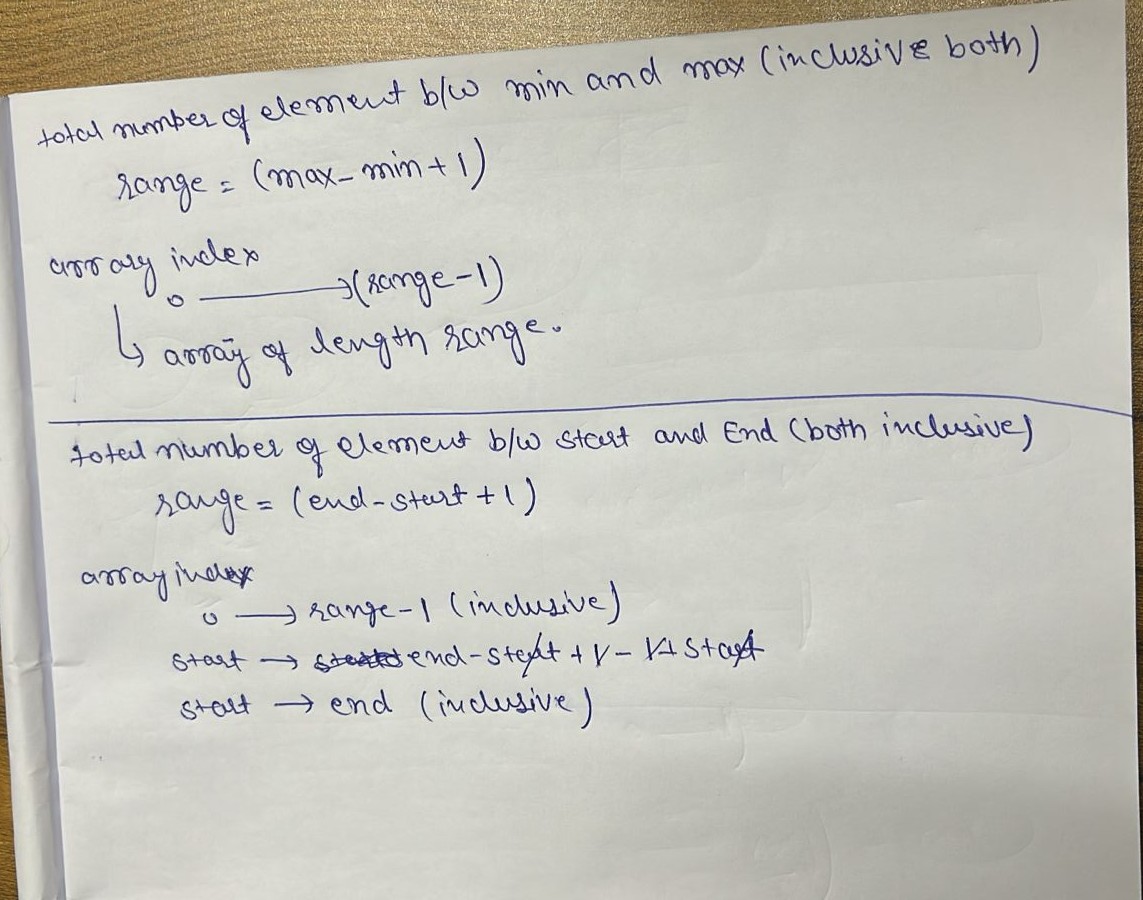 total number of element b/w min and max (inclusive both)
range = (max - min + 1)
array index
0 ⟶ (range-1)
↳ array of length range.
total number of element b/w start and End (both inclusive)
range = (end - start + 1)
array index
0 ⟶ range-1 (inclusive)
start → end - start + 1 - 1 + start
start → end (inclusive)